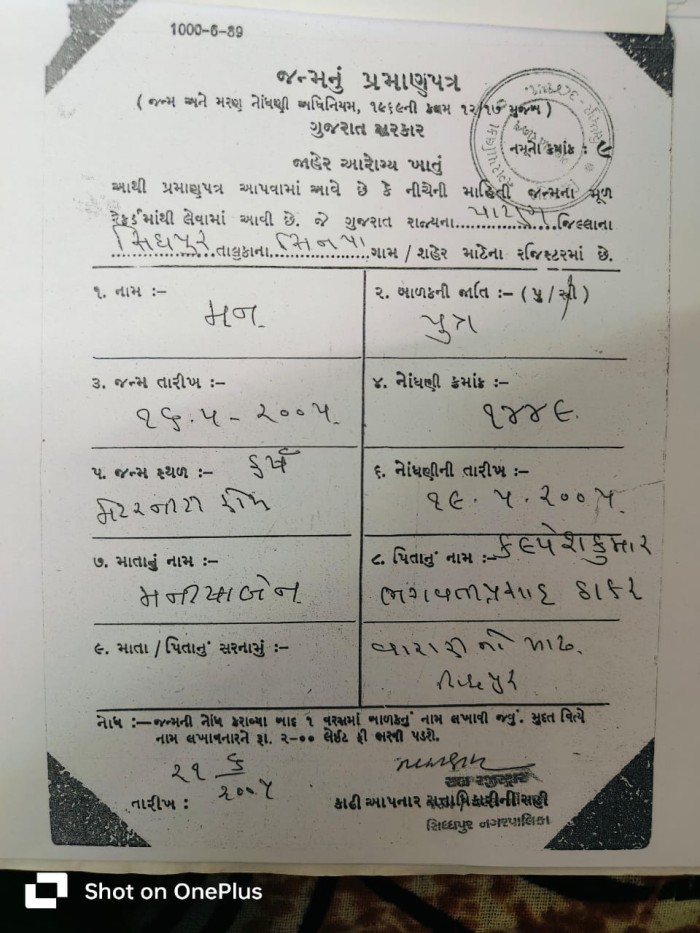 1000-6-89
જન્મનું પ્રમાણપત્ર
( જન્મ અને મરણ નોંધણી અધિનિયમ, ૧૯૬૯ની કલમ ૧૨/૧૭ મુજબ )
ગુજરાત સરકાર
નમૂનો ક્રમાંક :
જાહેર આરોગ્ય ખાતું
આથી પ્રમાણપત્ર આપવામાં આવે છે કે નીચેની માહિતી જન્મના મૂળ
રેકર્ડમાંથી લેવામાં આવી છે. જે ગુજરાત રાજ્યના પાટણ જિલ્લાના
સિધપુર તાલુકાના ગામ / શહેર માટેના રજિસ્ટરમાં છે.
૧. નામ :-
મન
૨. બાળકની જાતિ :- ( પુ / સ્ત્રી )
પુત્ર
૩. જન્મ તારીખ :-
૧૬.૫-૨૦૦૫.
૪. નોંધણી ક્રમાંક :-
૧૪૪૯.
૫. જન્મ સ્થળ :-
મેટરનીટી હોમ
૬. નોંધણીની તારીખ :-
૧૯.૫.૨૦૦૫.
૭. માતાનું નામ :-
મનીષાબેન
૮. પિતાનું નામ :- કલ્પેશકુમાર
ભગવતીપ્રસાદ ઠાકર
૯. માતા / પિતાનું સરનામું :-
સિધ્ધપુર
નોંધ :—જન્મની નોંધ કરાવ્યા બાદ ૧ વરસમાં બાળકનું નામ લખાવી જવું. મુદત વિત્યે
નામ લખાવનારને રૂા. ૨-૦૦ લેઈટ ફી ભરવી પડશે.
તારીખ : ૨૧ ૬ ૨૦૦૫
સબ રજીસ્ટ્રાર
કાઢી આપનાર સત્તાધિકારીની સહી
સિધ્ધપુર નગરપાલિકા
Shot on OnePlus